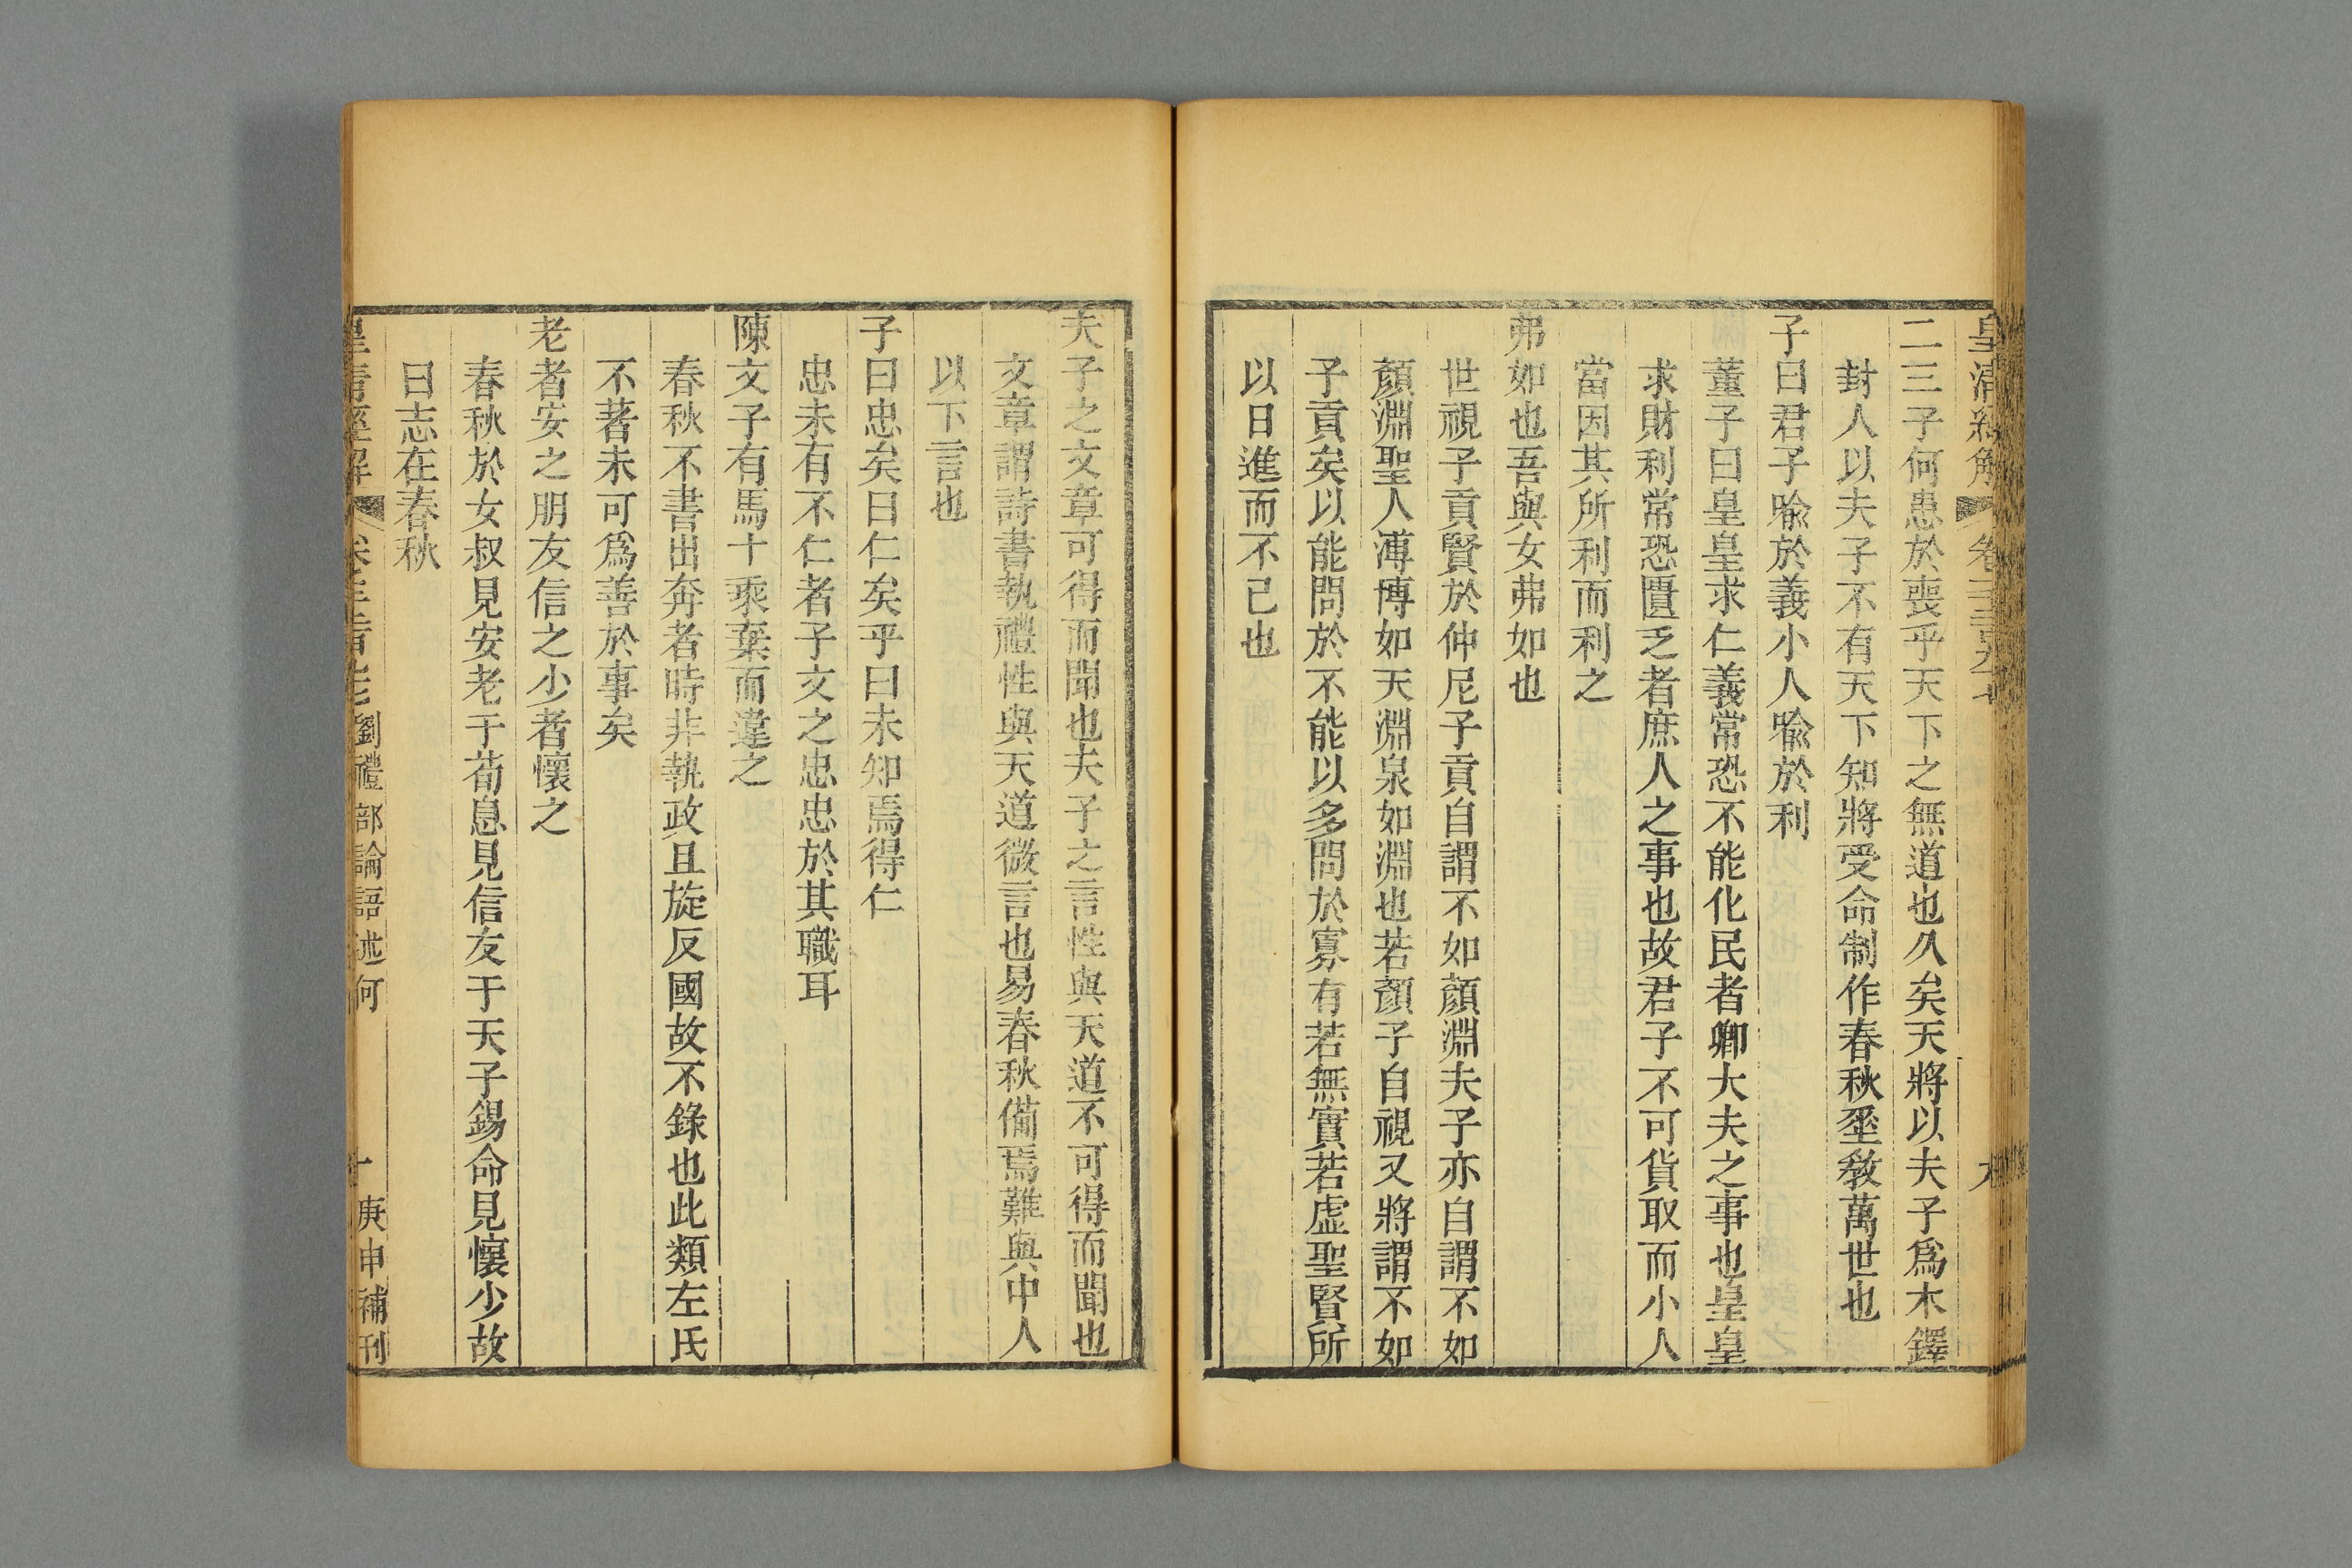 皇清經解
卷千二百九十七
九
二三子何患於喪乎天下之無道也久矣天將以夫子爲木鐸
封人以夫子不有天下知將受命制作春秋埀敎萬世也
子曰君子喩於義小人喩於利
董子曰皇皇求仁義常恐不能化民者卿大夫之事也皇皇
求財利常恐匱乏者庶人之事也故君子不可貨取而小人
當因其所利而利之
弗如也吾與女弗如也
世視子貢賢於仲尼子貢自謂不如顔淵夫子亦自謂不如
顔淵聖人溥博如天淵泉如淵也若顔子自視又將謂不如
子貢矣以能問於不能以多問於寡有若無實若虛聖賢所
以日進而不已也
夫子之文章可得而聞也夫子之言性與天道不可得而聞也
文章謂詩書執禮性與天道微言也易春秋備焉難與中人
以下言也
子曰忠矣曰仁矣乎曰未知焉得仁
忠未有不仁者子文之忠忠於其職耳
陳文子有馬十乘棄而違之
春秋不書出奔者時非執政且旋反國故不錄也此類左氏
不著未可爲善於事矣
老者安之朋友信之少者懷之
春秋於女叔見安老于荀息見信友于天子錫命見懷少故
曰志在春秋
皇清經解
劉禮部論語述何
十
庚申補刊